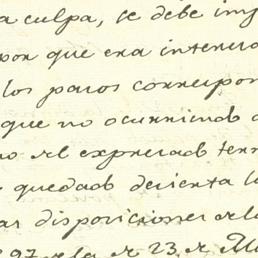 a culpa, se debe imp
por que era interino
los pasos correspon
que no ocurriendo a
no el expresado term
quedado desierta la
as disposiciones de la
97 de la de 23 de Ma